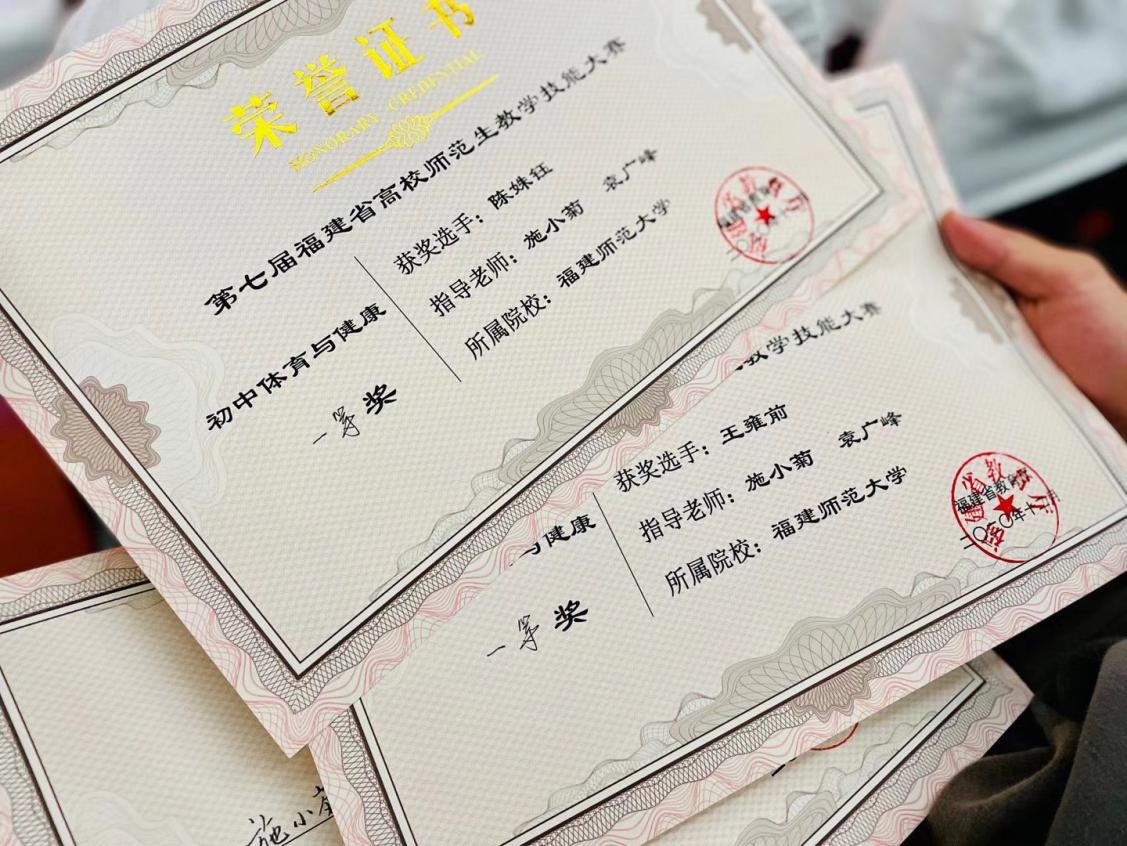 荣誉证书
HONORARY CREDENTIAL
第七届福建省高校师范生教学技能大赛
初中体育与健康
一等奖
获奖选手：陈姝钰
指导老师：施小菊 袁广峰
所属院校：福建师范大学
教学技能大赛
与健康
一等奖
获奖选手：王雍前
指导老师：施小菊 袁广峰
所属院校：福建师范大学
福建省教育厅
施小菊